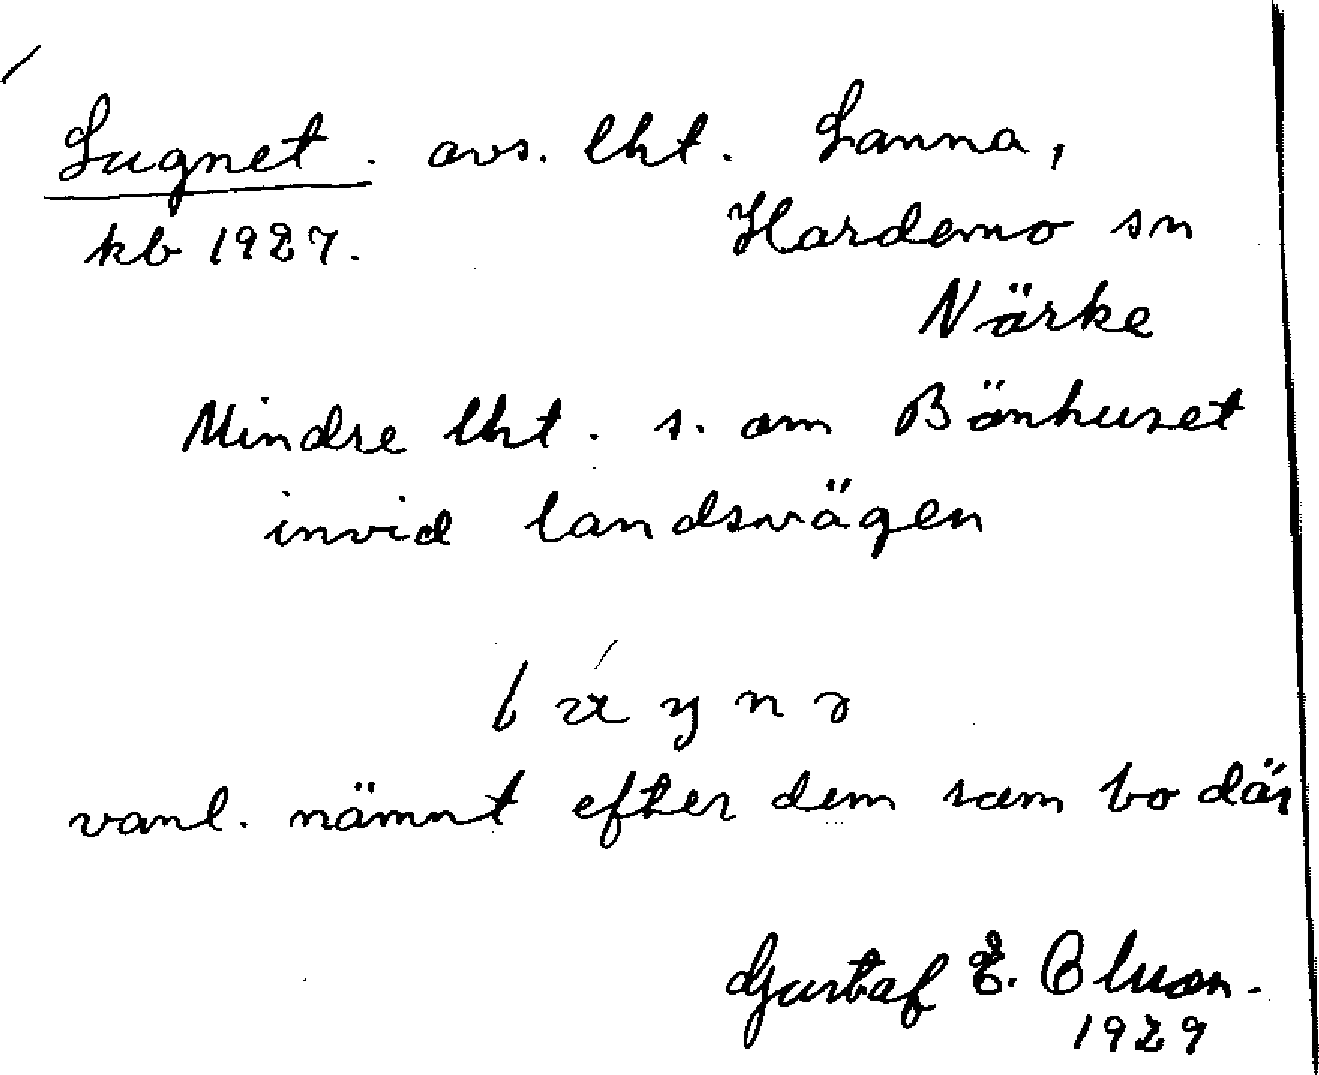 Lugnet. avs. lht. Lanna,
kb 1927. Hardemo sn
Närke
Mindre lht. s. om Bönhuset
invid landsvägen
vanl. nämnt efter dem som bo där
Gustaf E. Olson.
1929